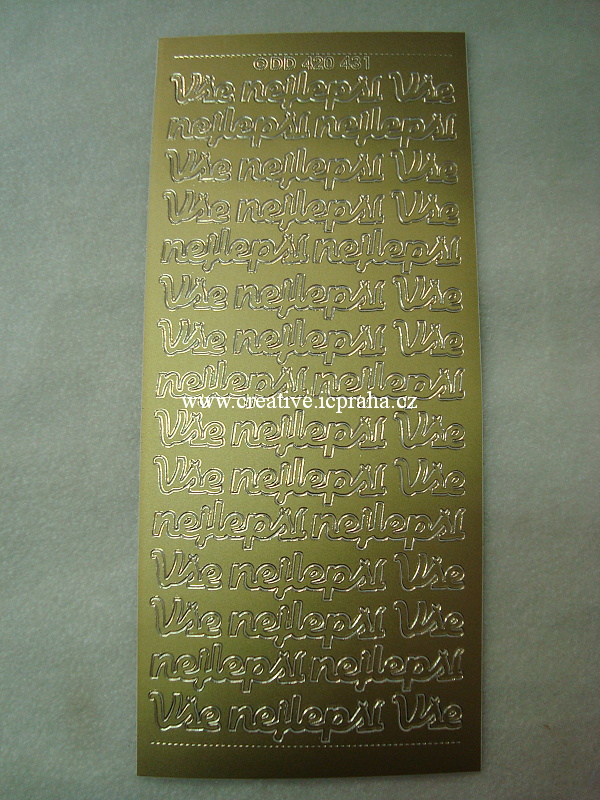 ©DD 420 431
Vše nejlepší Vše
nejlepší nejlepší
Vše nejlepší Vše
Vše nejlepší Vše
nejlepší nejlepší
Vše nejlepší Vše
Vše nejlepší Vše
nejlepší nejlepší
www.creative.icpraha.cz
Vše nejlepší Vše
Vše nejlepší Vše
nejlepší nejlepší
Vše nejlepší Vše
Vše nejlepší Vše
nejlepší nejlepší
Vše nejlepší Vše